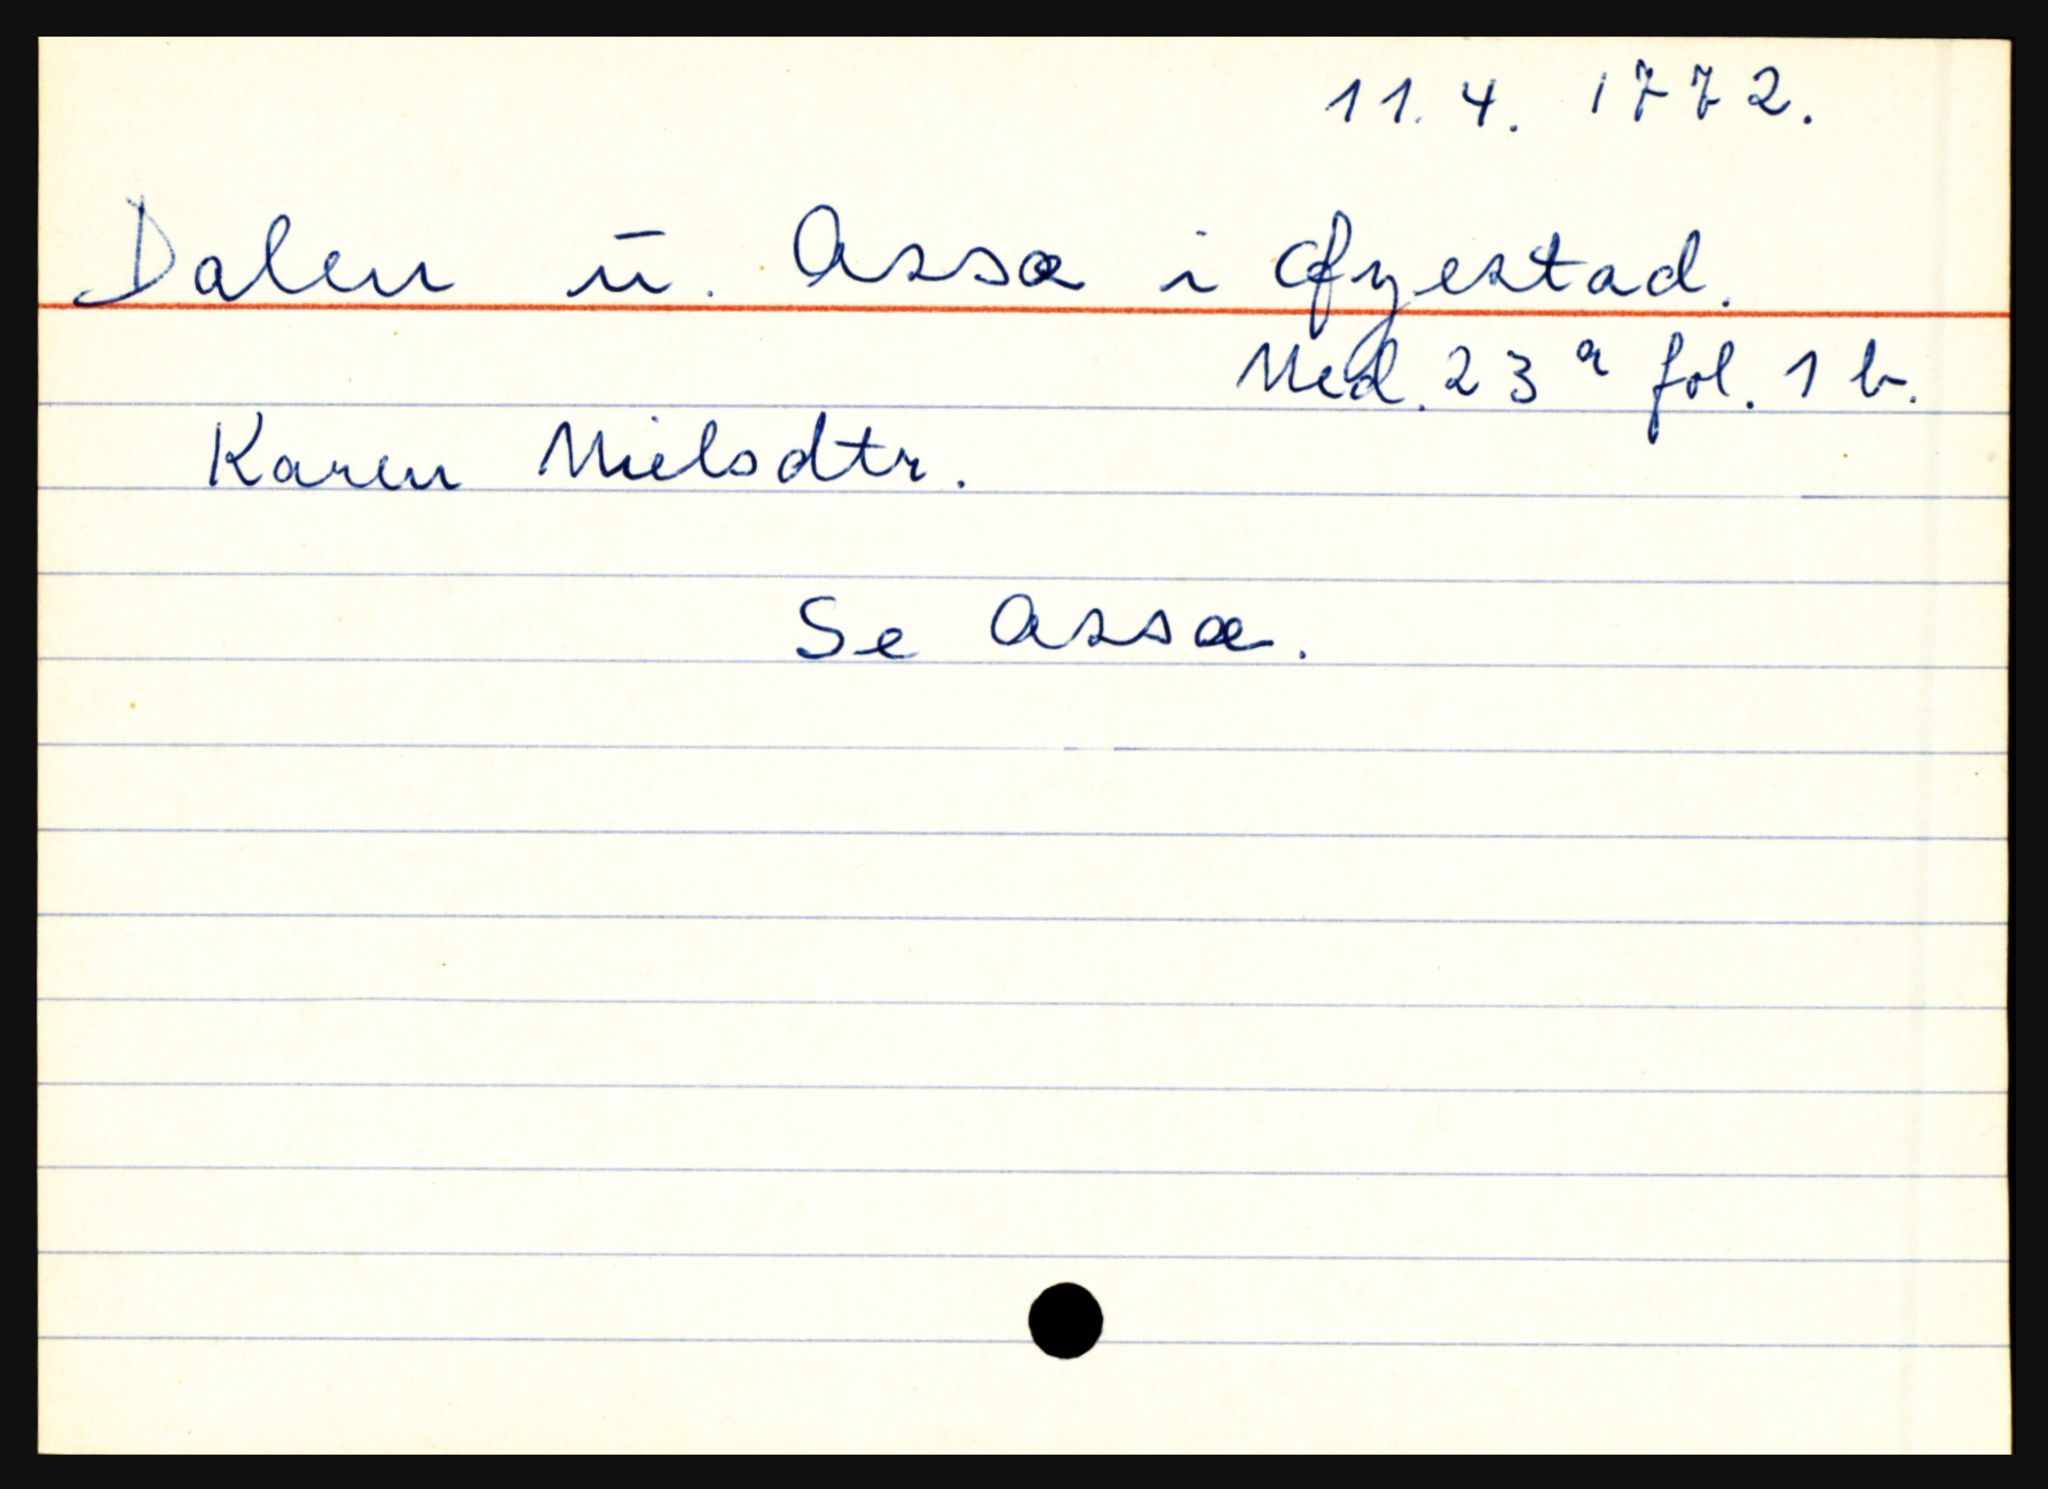 11.4. 1772.
Dalen u. Assæ i Øyestad.
Ned. 23 a fol. 1 b.
Karen Nielsdtr.
Se Assæ.